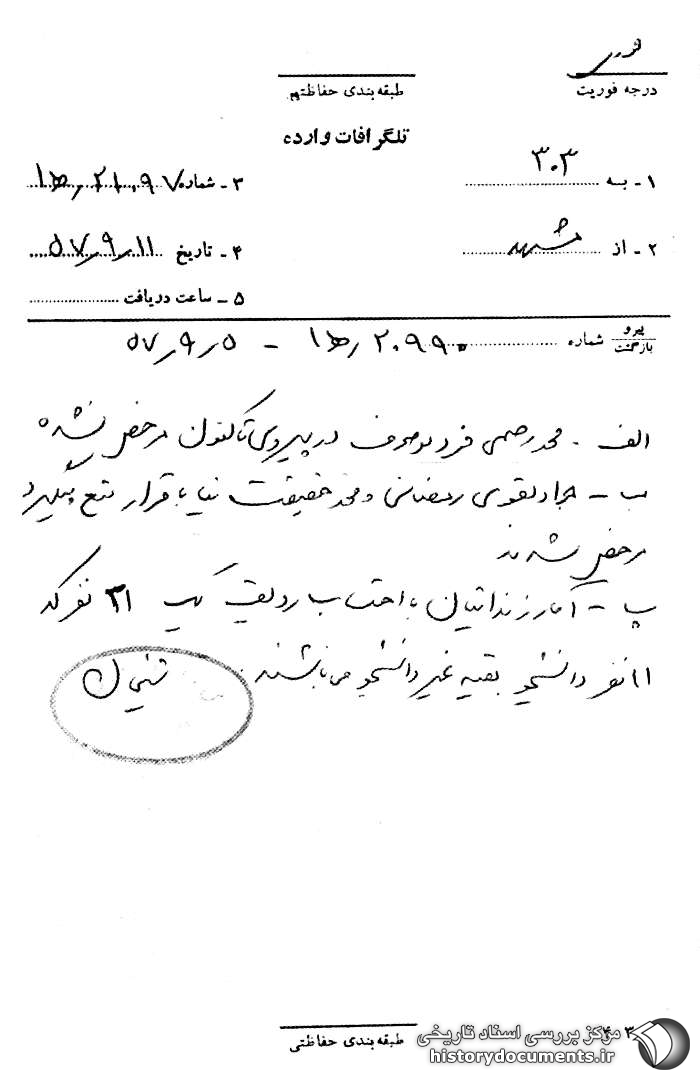 فوری
درجه فوریت
طبقه بندی حفاظتی
تلگرافات وارده
۱ - به ۳۰۳
۳ - شماره ۲۱۰۹۷ / ه‍ ۱
۲ - از مشهد
۴ - تاریخ ۵۷/۹/۱۱
۵ - ساعت دریافت
پیرو
بازگشت
شماره ۲۰۹۹۰ / ه‍ ۱ - ۵۷/۹/۵
الف - محمد رحیمی فرد موصوف در پیروی تاکنون مرخص نشده
ب - جواد تقوی رمضانی و محمد حقیقت نیا با قرار منع پیگرد
مرخص شدند
پ - آمار زندانیان با احتساب ردیف یک ۳۱ نفر که
۱۱ نفر دانشجو بقیه غیر دانشجو می باشند.
طبقه بندی حفاظتی
۴۰۳
مرکز بررسی اسناد تاریخی
historydocuments.ir